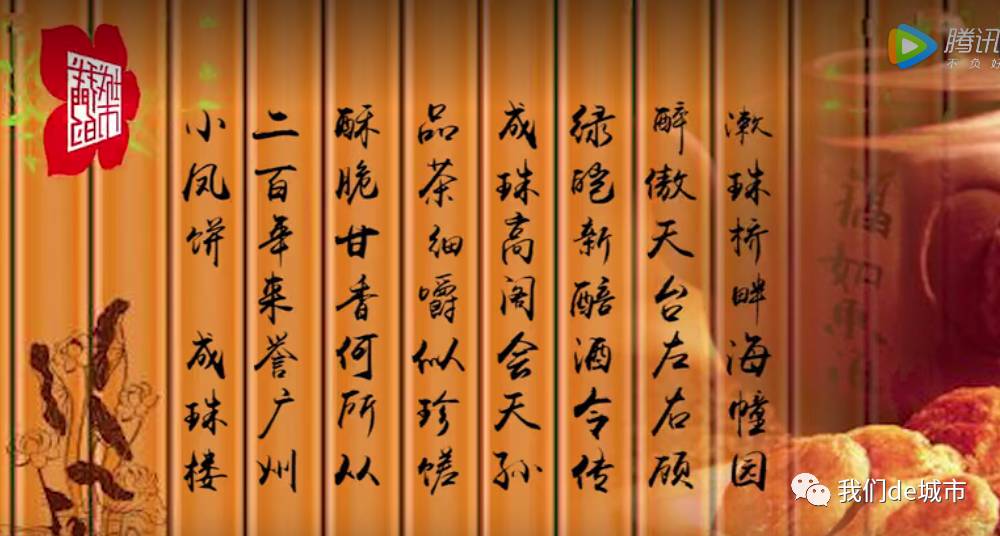 漱珠桥畔海幢园
醉傲天台左右顾
绿皑新醅酒令传
成珠高阁会天孙
品茶细嚼似珍馐
酥脆甘香何所从
二百年来誉广州
小凤饼 成珠楼
腾讯
不负好
福如东海
我们de城市